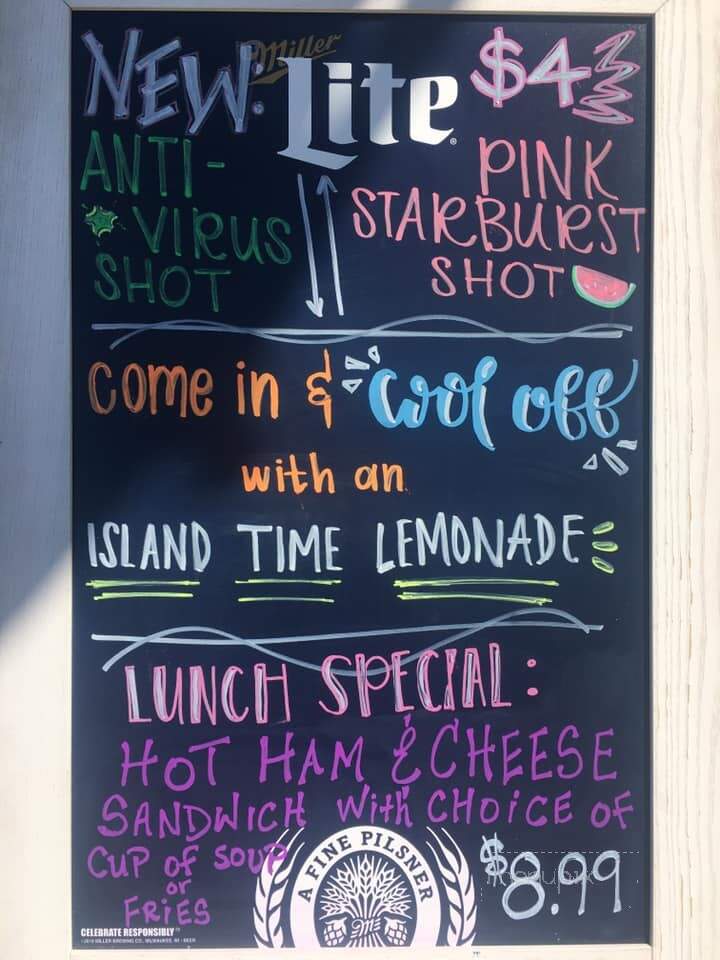 NEW:
Miller
Lite
$4
ANTI-
VIRUS
SHOT
PINK
STARBURST
SHOT
come in & cool off
with an
ISLAND TIME LEMONADE
LUNCH SPECIAL:
HOT HAM & CHEESE
SANDWICH WITH CHOICE OF
CUP OF SOUP
or
FRIES
$8.99
A FINE PILSNER
CELEBRATE RESPONSIBLY